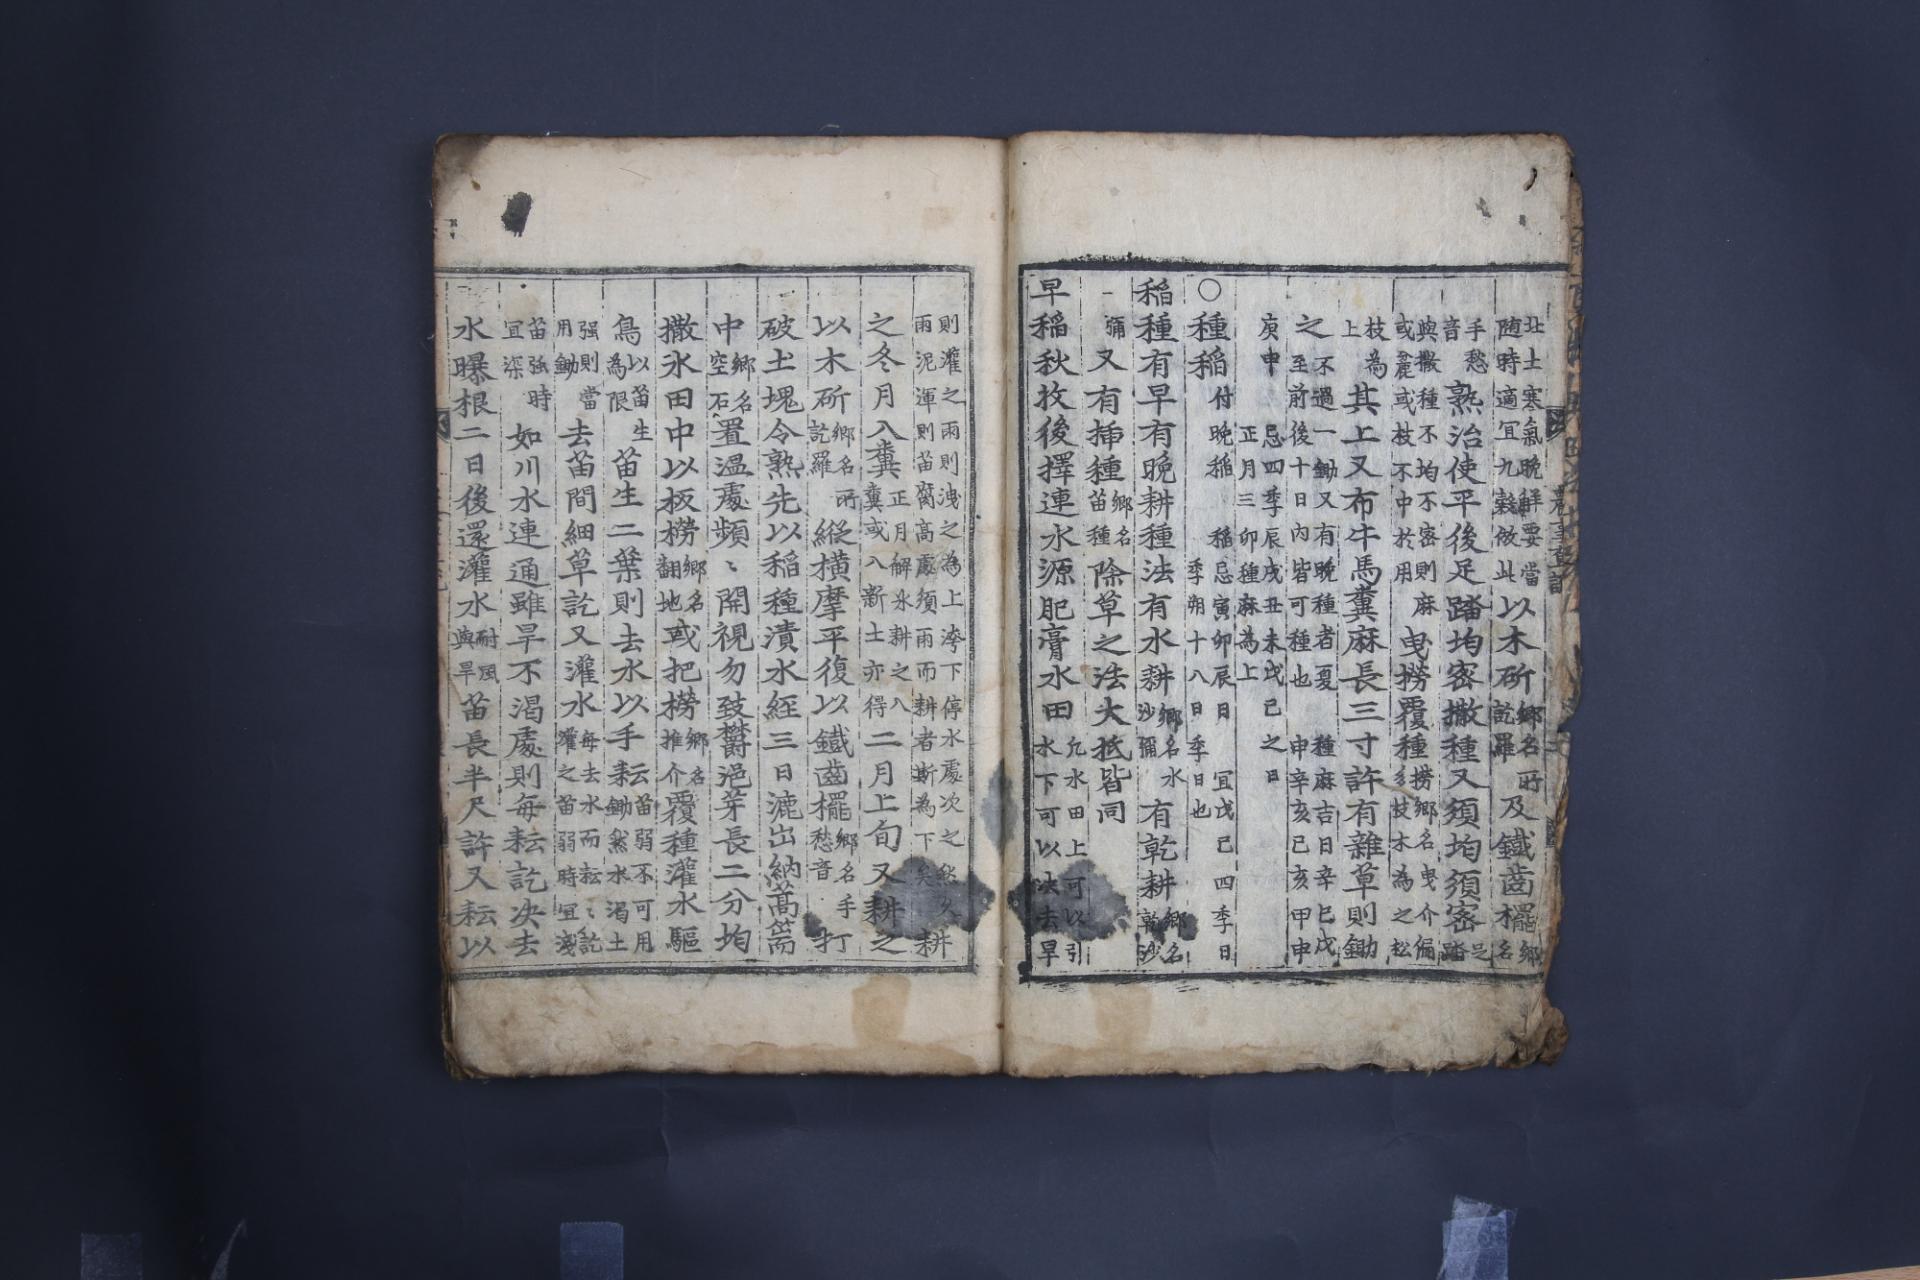 北土寒氣晚解要當 随時適宜九穀倣此 以木斫 鄕名所訖羅 及鐵齒擺 鄕名
手愁音 熟治使平後足踏均密撒種又須均須密 足踏
與撒種不均不密則麻 或麄或枝不中於用 曳撈覆種 撈鄕名曳介 枝木為之松
枝為上 其上又布牛馬糞麻長三寸許有雜草則鋤
之 不過一鋤又有晚種者夏 至前後十日內皆可種也 種麻吉日辛巳戊 申辛亥己亥甲申
庚申 忌四季辰戌丑未戊己之日 正月三卯種麻為上
○種稻 付晚稻 稻忌寅卯辰日 宜戊己四季日 季朔十八日季日也
稻種有早有晚耕種法有水耕 鄕名水沙彌 有乾耕 鄕名乾沙
彌 又有揷種 鄕名苗種 除草之法大抵皆同
早稻秋收後擇連水源肥膏水田 允水田上可以引 水下可以决去旱
則灌之雨則洩之為上渟下停水處次之然久 雨泥渾則苗腐高處須雨而耕者斯為下矣 耕
之冬月入糞 正月解氷耕之入糞或入新土亦得 二月上旬又耕之
以木斫 鄕名所訖羅 縱橫摩平復以鐵齒擺 鄕名手愁音 打
破土塊令熟先以稻種漬水經三日漉出納蒿篅
中 鄕名空石 置溫處頻〻開視勿致欝浥芽長二分均
撒水田中以板撈 鄕名翻地 或把撈 鄕名推介 覆種灌水驅
鳥 以苗生為限 苗生二葉則去水以手耘 苗弱不可用鋤然水渴土
强則當用鋤 去苗間細草訖又灌水 每去水而耘〻訖灌之苗弱時宜淺
苗强時宜深 如川水連通雖旱不渴處則每耘訖决去
水曝根二日後還灌水 耐風與旱 苗長半尺許又耘以